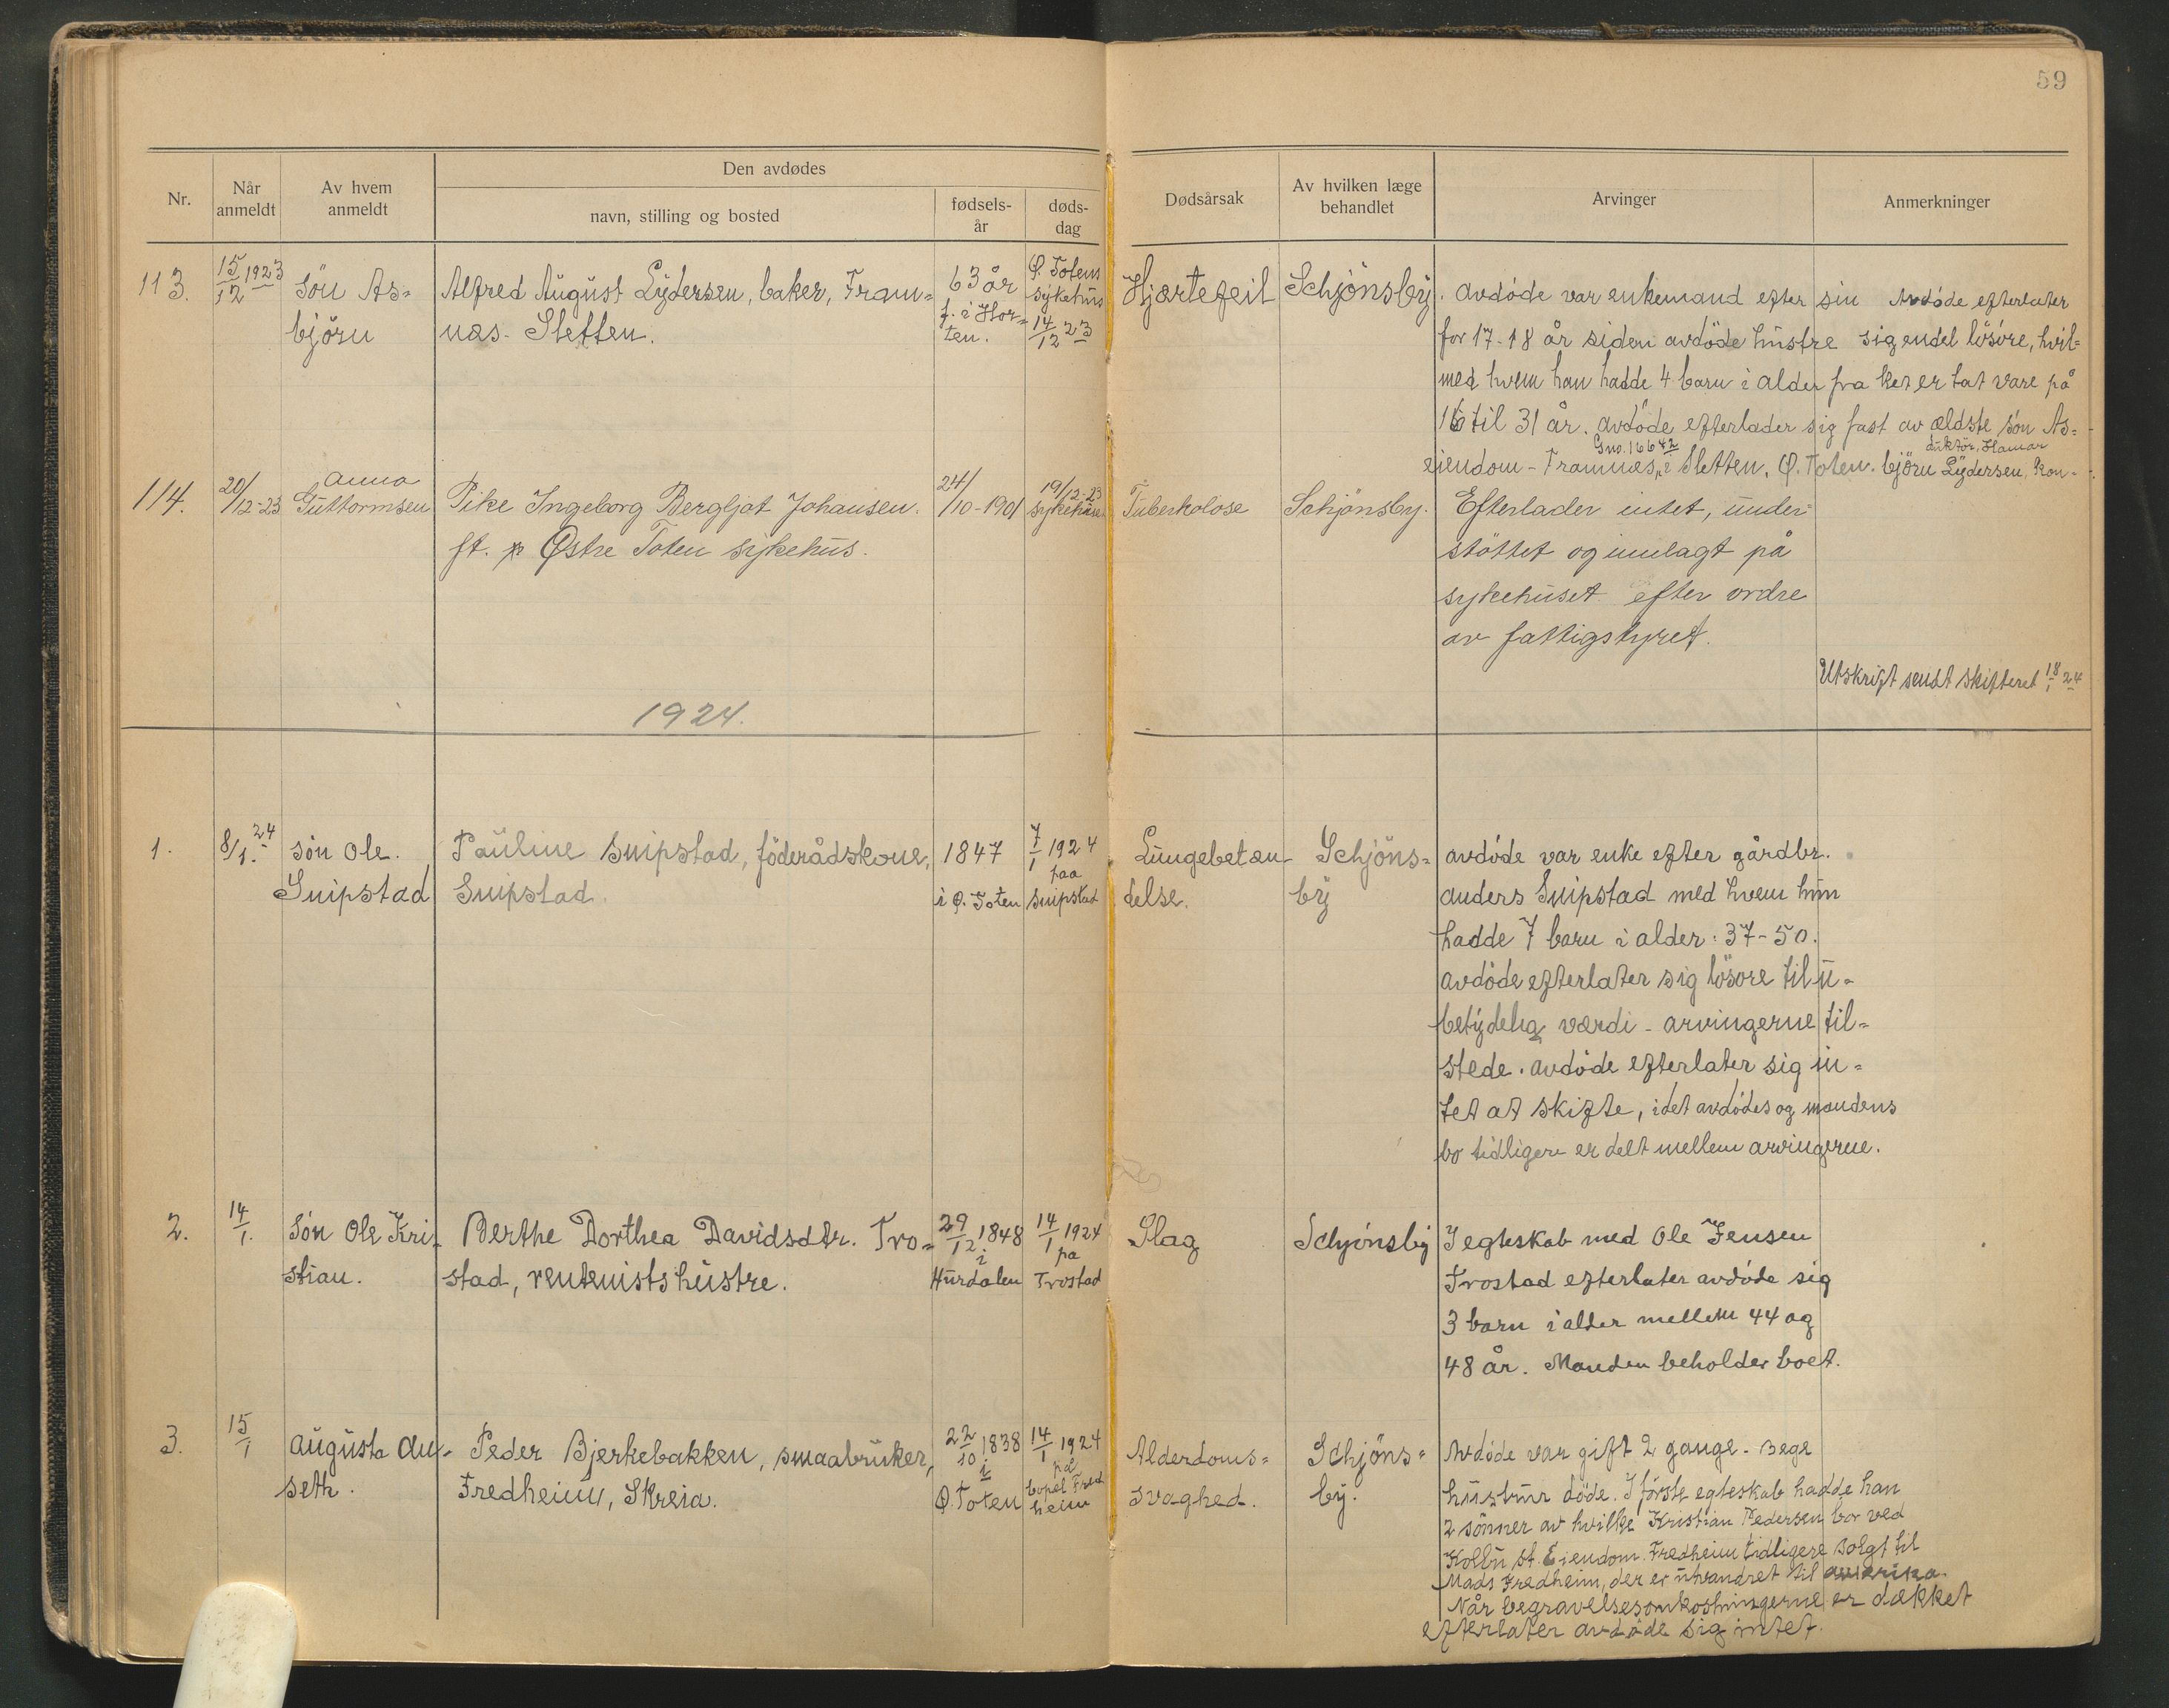 59
Den avdødes
Nr.
Når anmeldt
Av hvem anmeldt
navn, stilling og bosted
fødsels- år
døds- dag
Dødsårsak
Av hvilken læge behandlet
Arvinger
Anmerkninger
113.
15/12 1923
søn As=
björn
Alfred August Lydersen, baker, Fram=
næs - Sletten.
63 år
f. i Hor=
ten.
Ø. Totens
sykehus
14/12 23
Hjærtefeil
Schjønsby.
Avdøde var enkemand efter sin
for 17-18 år siden avdöde hustre
med hvem han hadde 4 barn i alder fra
16 til 31 år. avdöde efterlader sig fast
Gno. 166 42
eiendom - Framnæs, i Sletten, Ø. Toten.
Avdöde efterlater
sig endel lösöre, hvil=
ket er tat vare på
av ældste sön As=
duktör, Hamar
björn Lydersen, kon-
114.
20/12-23
Anna
Guttormsen
Pike Ingeborg Bergljot Johansen.
ft. p Østre Toten sykehus.
24/10-1901
19/12-23
sykehuset
Tuberkolose
Schjönsby.
Efterlader intet, under
støttet og innlagt på
sykehuset efter ordre
av fattigstyret.
Utskrift sendt skifteret 18/1 24
1924.
1.
8/1. 24
søn Ole.
Snipstad
Pauline Snipstad, föderådskone,
Snipstad.
1847
i Ø. Toten
7/1 1924
paa
Snipstad
Lungebetæn-
delse.
Schjöns=
by
avdöde var enke efter gårdbr.
Anders Snipstad med hvem hun
hadde 7 barn i alder: 37-50.
avdöde efterlater sig lösöre til u-
betydelig værdi - arvingerne til=
stede. avdöde efterlater sig in-
tet at skifte, idet avdödes og mandens
bo tidligere er delt mellem arvingerne.
2.
14/1.
Sön Ole Kri-
stian.
Berthe Dorthea Davidsdtr. Tro=
stad, rentenists hustre.
29/12 1848
i
Hurdalen
14/1 1924
pa
Trostad
Slag
Schjönsby
I egteskab med Ole Jensen
Trostad efterlater avdöde sig
3 barn i alder mellem 44 og
48 år. Manden beholder boet.
3.
15/1
Augusta An-
seth.
Peder Bjerkebakken, smaabruker,
Fredheim, Skreia.
22/10 1838
i
Ø. Toten
14/1 1924
på
bopel Fred
heim
Alderdoms=
svaghed.
Schjöns=
by.
Avdöde var gift 2 gange - bege
hustrur döde. I første egteskab hadde han
2 sönner av hvilke Kristian Pedersen bor ved
Kolbu st. Eiendom. Fredheim tidligere solgt til
Mads Fredheim, der er utvandret til amerika.
Når begravelsesomkostningerne er dækket
efterlater avdöde sig intet.